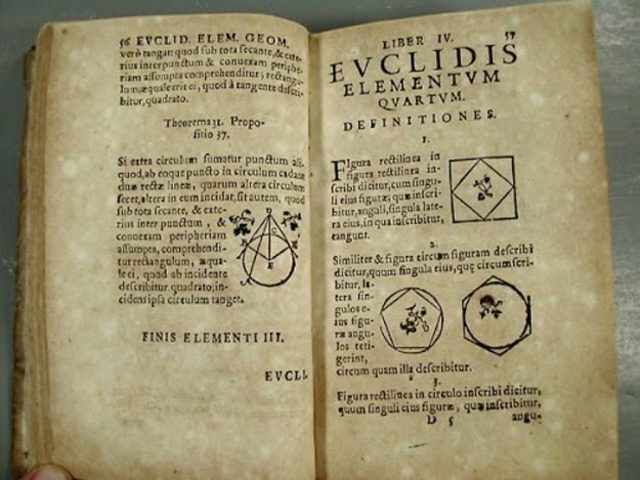 56 EVCLID. ELEM. GEOM.
verò tangat quod sub tota secante, & exte-
rius inter punctum & conuexam periphe-
riam assumpta comprehenditur, rectangu-
lum, æquale erit ei, quod à tangente descri-
bitur, quadrato.
Theorema 31. Propo-
sitio 37.
Si extra circulum sumatur punctum ali-
quod, ab eoque puncto in circulum cadant
duæ rectæ lineæ, quarum altera circulum
secet, altera in eum incidat, sit autem, quod
sub tota secante, & exte-
rius inter punctum, &
conuexam peripheriam
assumpta, comprehendi-
tur rectangulum, æqua-
le ei, quod ab incidente
describitur quadrato; in-
cidens ipsa circulum tanget.
D
C
B
E
FINIS ELEMENTI III.
EVCLI.
LIBER IV. 57
EVCLIDIS
ELEMENTVM
QVARTVM.
DEFINITIONES.
1.
FIgura rectilinea in
figura rectilinea in-
scribi dicitur, cum singu-
li eius figuræ, quæ inscri-
bitur, anguli, singula late-
ra eius, in qua inscribitur,
tangunt.
2.
Similiter & figura circum figuram describi
dicitur, quum singula eius, quę circumscri-
bitur, la-
tera sin-
gulos e-
ius figu-
ræ angu-
los teti-
gerint,
circum quam illa describitur.
3.
Figura rectilinea in circulo inscribi dicitur,
quum singuli eius figuræ, quæ inscribitur,
D 5 angu-